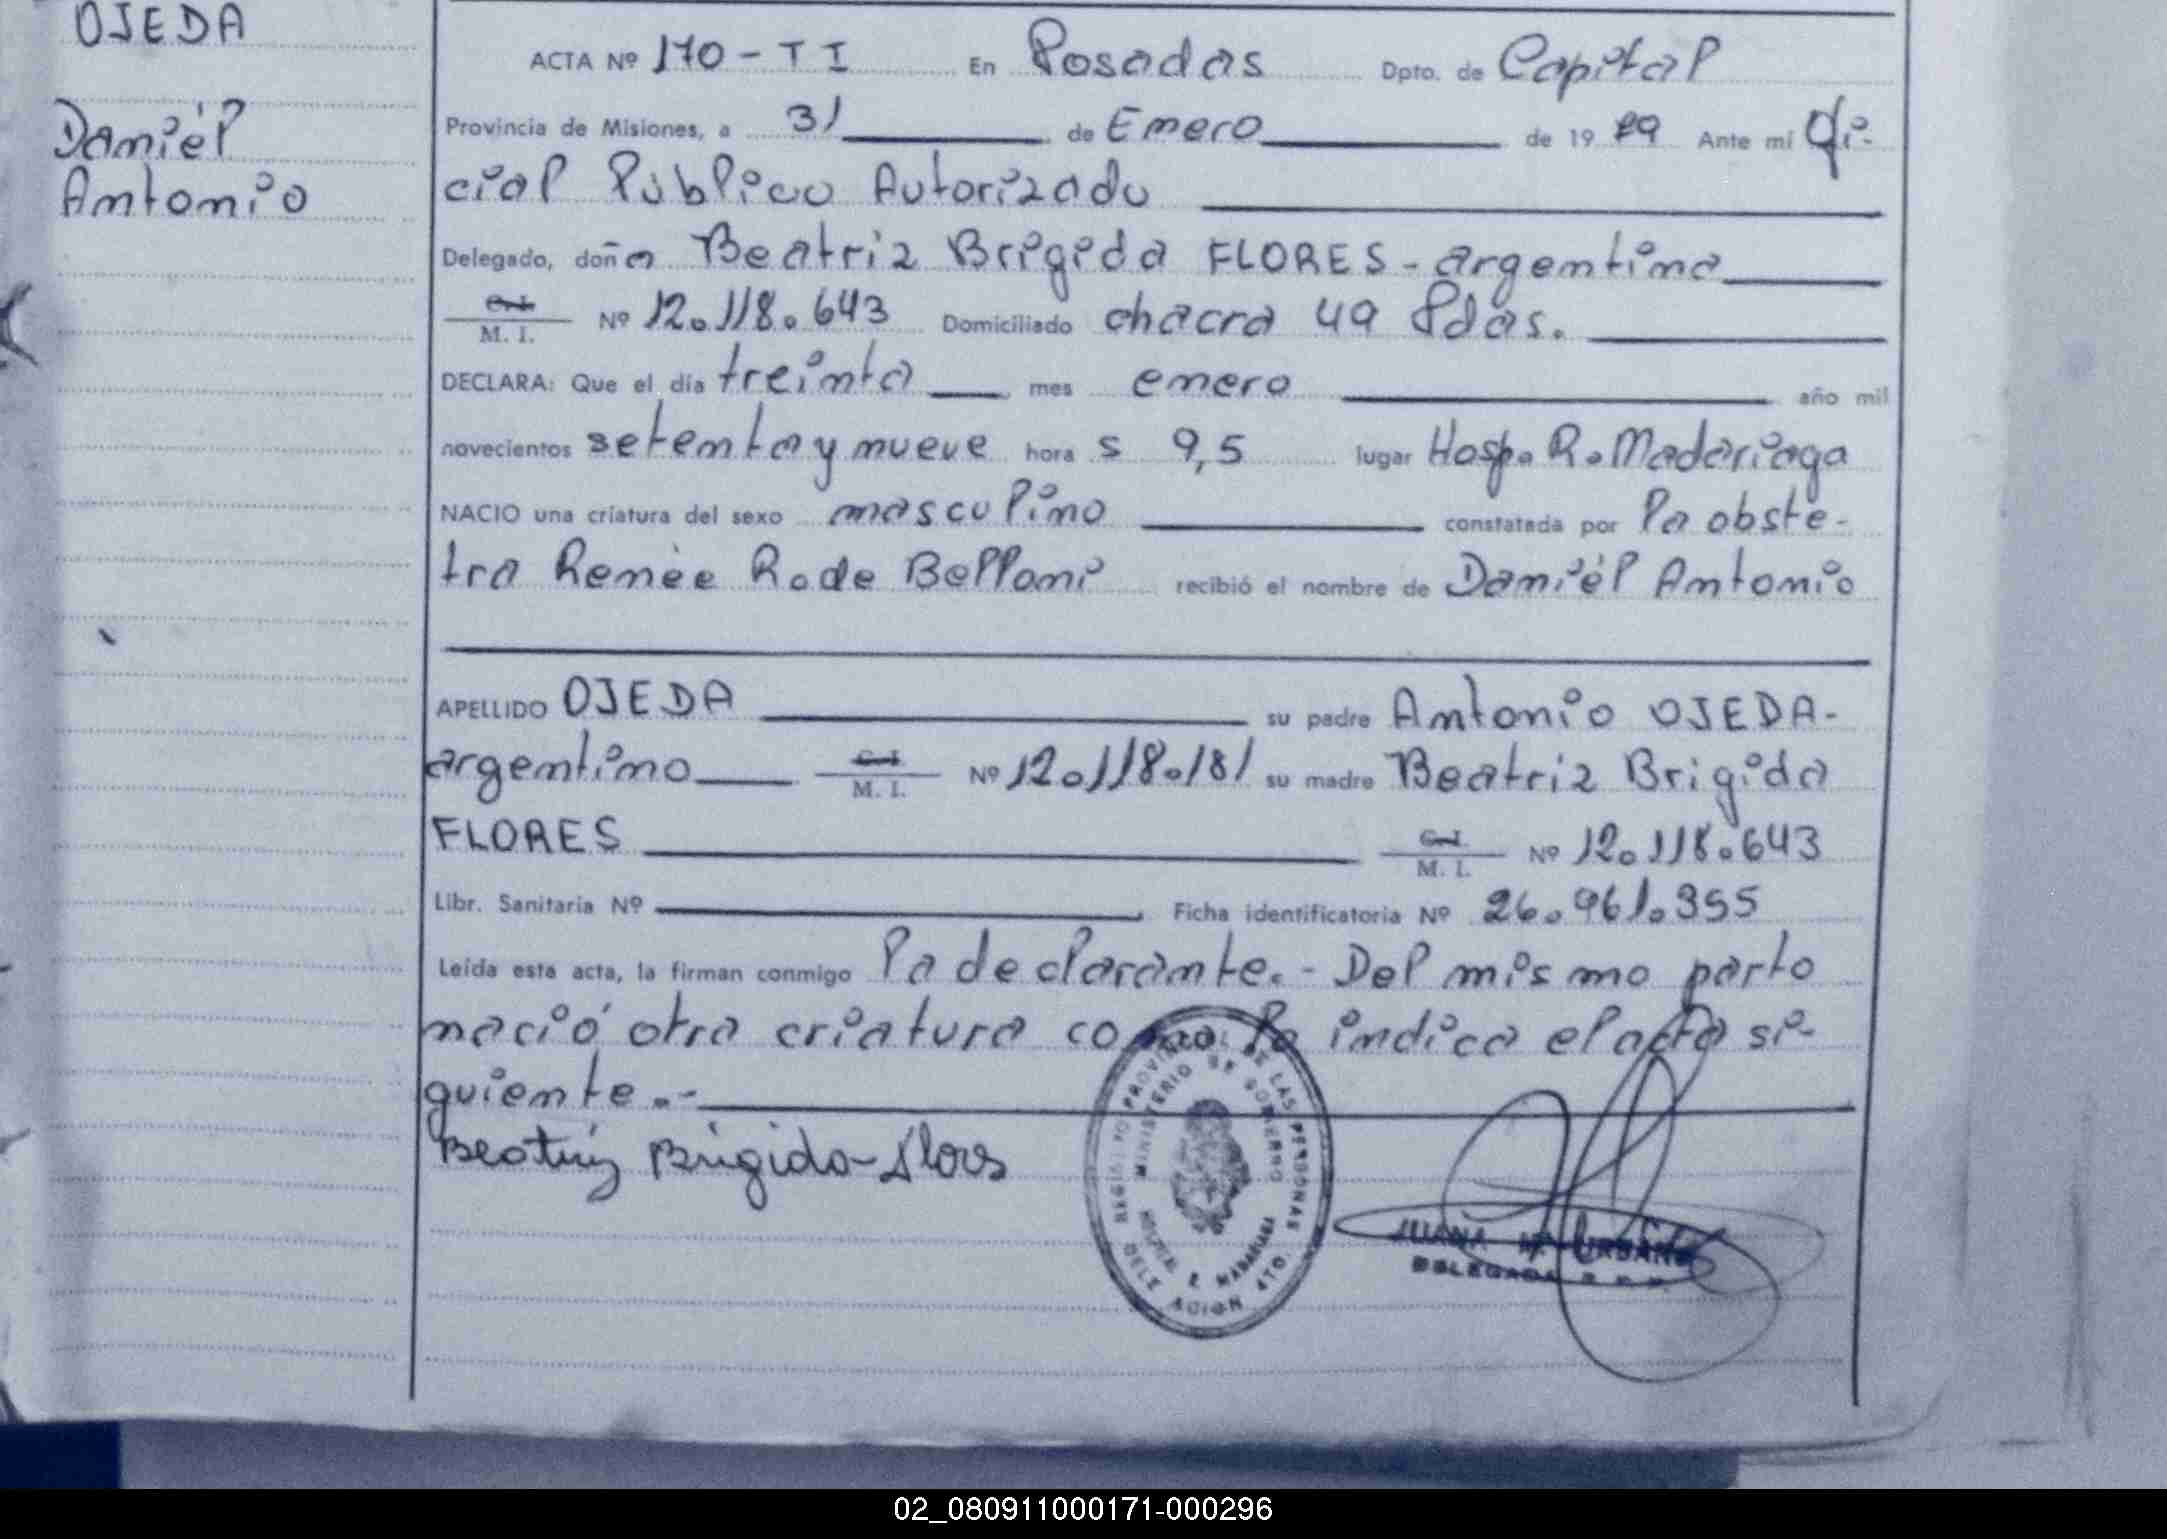 OJEDA
Daniél
Antonio
ACTA Nº 170-TI En Posadas Dpto. de Capital
Provincia de Misiones, a 31 de Enero de 1979 Ante mí Ofi-
cial Público Autorizado
Delegado, doña Beatriz Brigida FLORES - argentina
C.I. M. I. Nº 12.118.643 Domiciliado chacra 49 Pdas.
DECLARA: Que el día treinta mes enero año mil
novecientos setenta y nueve hora s 9,5 lugar Hosp. R. Madariaga
NACIO una criatura del sexo masculino constatada por la obste-
tra Renèe R. de Belloni recibió el nombre de Daniél Antonio
APELLIDO OJEDA su padre Antonio OJEDA-
argentino C.I. M. I. Nº 12.118.181 su madre Beatriz Brigida
FLORES C.I. M. I. Nº 12.118.643
Libr. Sanitaria Nº Ficha identificatoria Nº 26.961.355
Leída esta acta, la firman conmigo la declarante.- Del mismo parto
nació otra criatura como lo indica el acta si-
guiente.-
Beatriz Brigida Flores
REGISTRO PROVINCIAL DE LAS PERSONAS
MINISTERIO DE GOBIERNO
HOSPITAL R. MADARIAGA
DELEGACION 4TO.
JUANA M. URBANO
DELEGADA R. P. P.
02_080911000171-000296